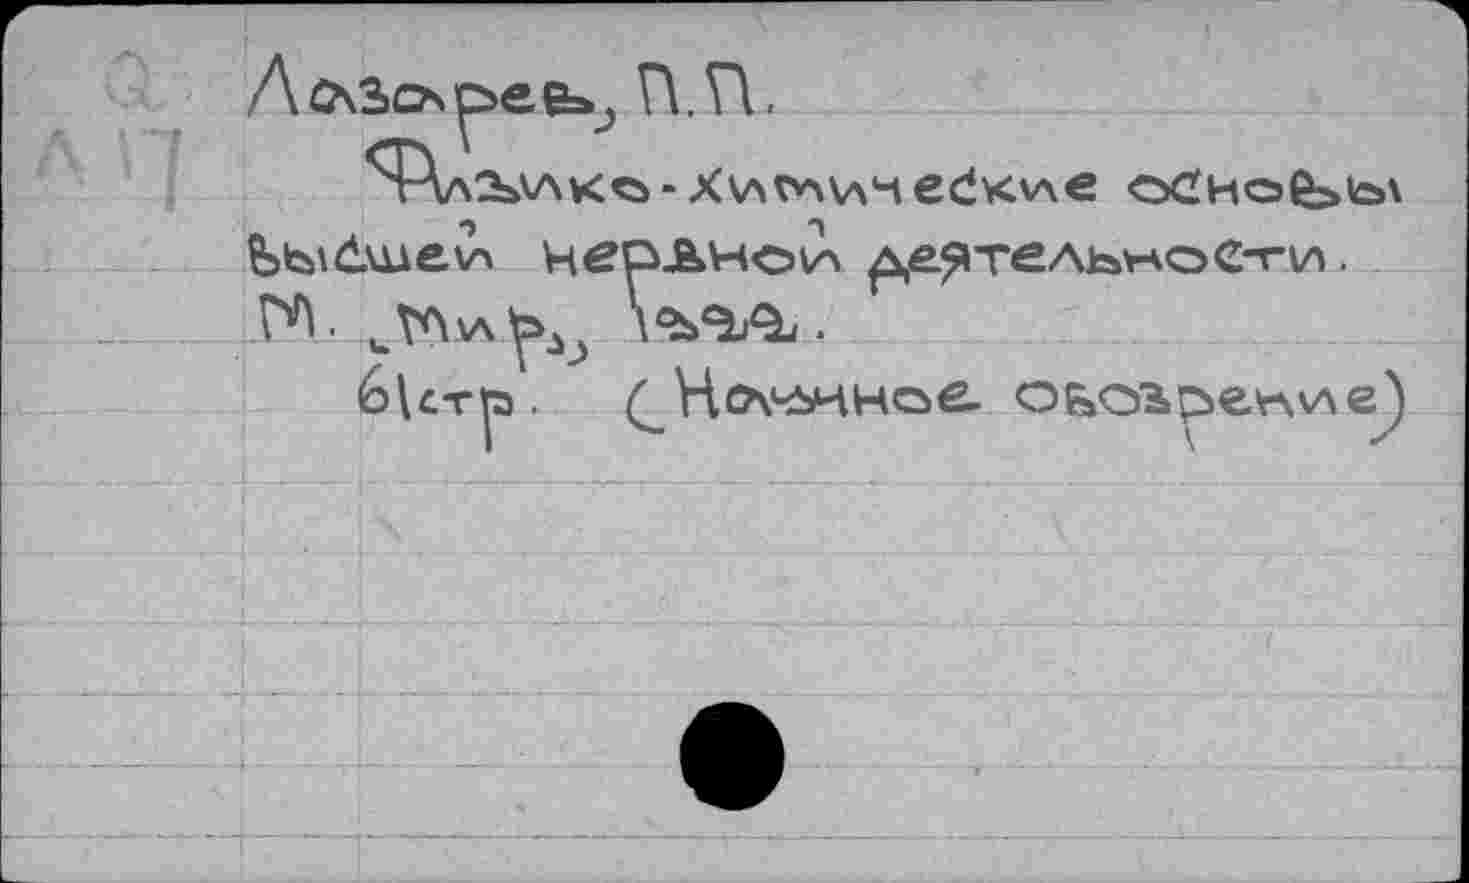 Q
Лазарев, П.П.
Л17
Физико-химические основы
высшей нервной деятельности.
М. „Мир„, 1922.
61стр. (Научное обозрение)